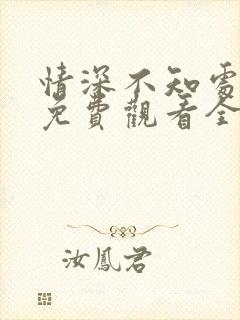 情深不知處
免費觀看全
汝鳳君